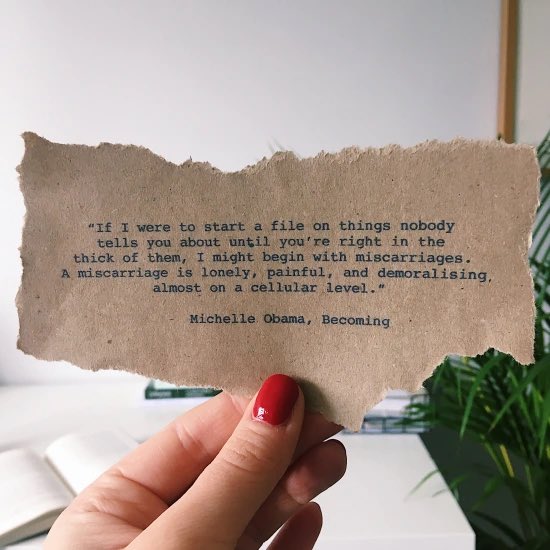 “If I were to start a file on things nobody
tells you about until you’re right in the
thick of them, I might begin with miscarriages.
A miscarriage is lonely, painful, and demoralising,
almost on a cellular level.”
Michelle Obama, Becoming